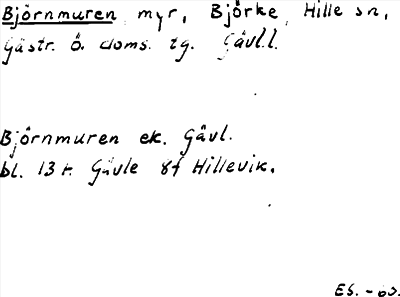 Björnmuren myr, Björke, Hille sn,
Gästr. ö. doms. tg. Gävl.l.
Björnmuren ek. Gävl.
bl. 13 H Gävle 8f Hillevik.
ES. -60.